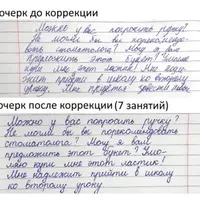 очерк до коррекции
Можно у вас попросить ручку?
Не могли бы вы порекомендо-
вать стоматолога? Могу я вам
предложить этот букет?
купи мне этот ластик! Мне над-
лежит прийти в школу ко второму
уроку. Мне придется
очерк после коррекции (7 занятий)
Можно у вас попросить ручку?
Не могли бы вы порекомендовать
стоматолога? Могу я вам
предложить этот букет? Умо-
ляю купи мне этот ластик!
Мне надлежит прийти в школу
ко второму уроку.